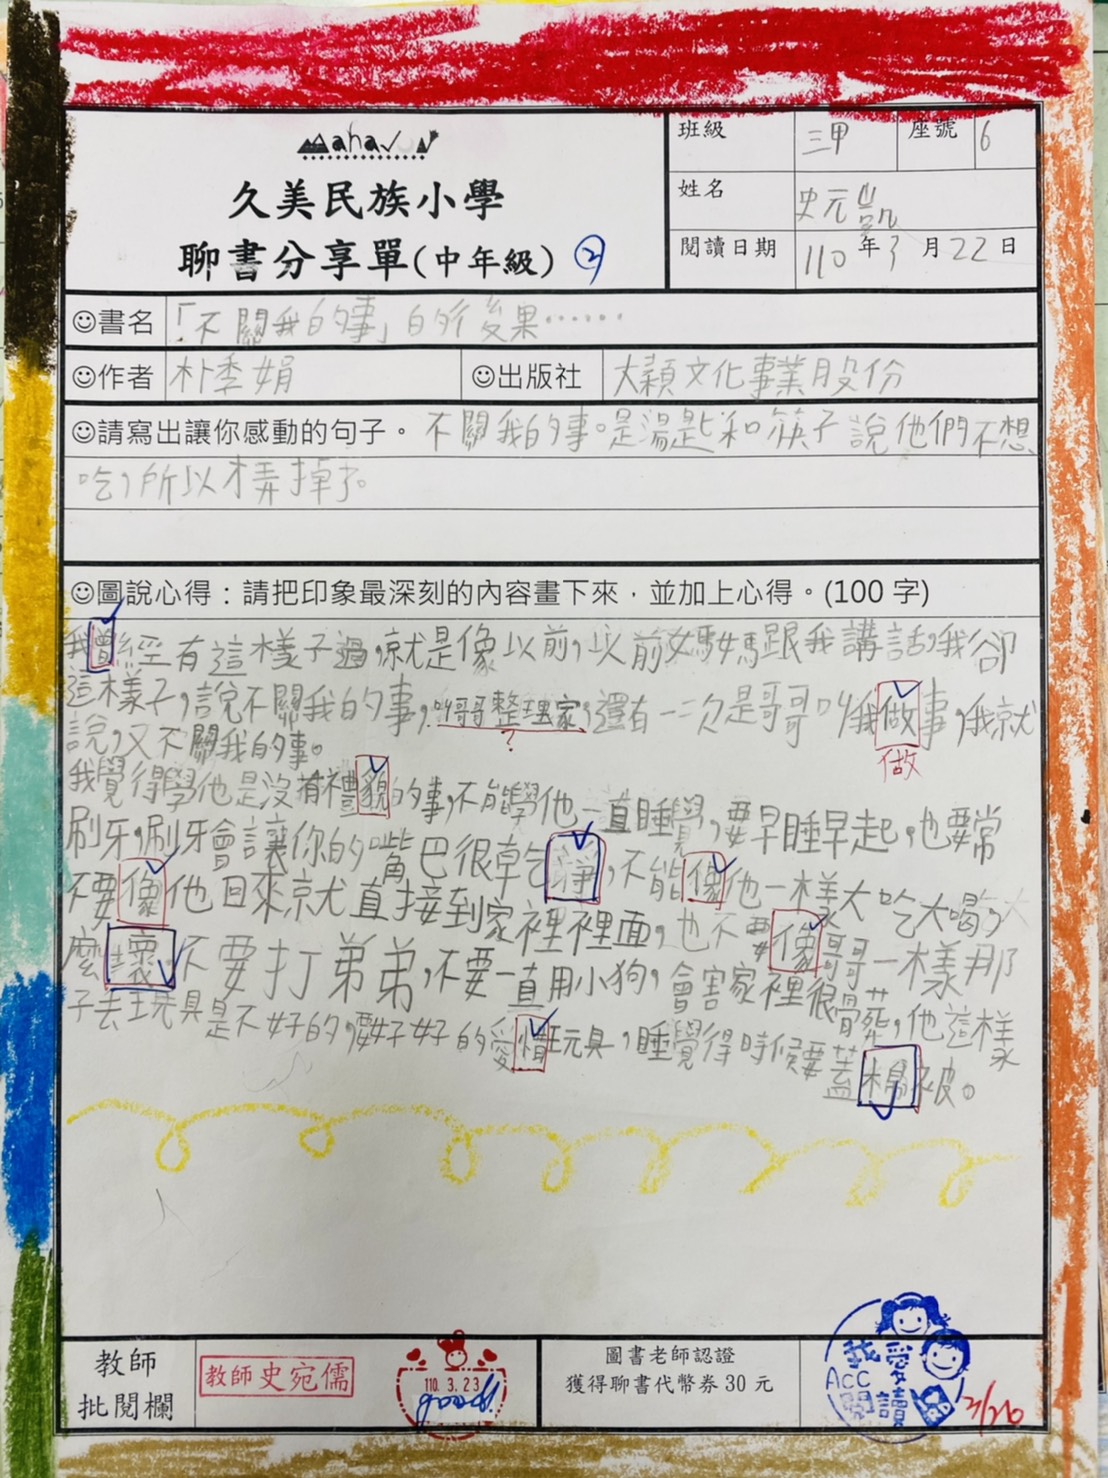 Mahavun
久美民族小學
聊書分享單(中年級) ②
班級 三甲 座號 6
姓名 史元凱
閱讀日期 110年3月22日
☺書名 「不關我的事」的後果……
☺作者 朴季娟 ☺出版社 大穎文化事業股份
☺請寫出讓你感動的句子。不關我的事。是湯匙和筷子說他們不想
吃,所以才弄掉了。
☺圖說心得：請把印象最深刻的內容畫下來，並加上心得。(100 字)
我曾經有這樣子過,就是像以前,以前媽媽跟我講話,我卻
這樣子,說不關我的事,叫哥哥整理家,還有一次是哥哥叫我做事,我就
?
做
說,又不關我的事。
我覺得學他是沒有禮貌的事,不能學他一直睡覺,要早睡早起,也要常
刷牙,刷牙會讓你的嘴巴很乾淨,不能像他一樣大吃大喝,
不要像他回來就直接到家裡裡面,也不要像哥哥一樣那
麼壞,不要打弟弟,不要一直用小狗,會害家裡很骨髒,他這樣
子去玩具是不好的,要好好的愛惜玩具,睡覺得時候要蓋棉被。
教師
批閱欄
教師史宛儒
110. 3. 23
good
圖書老師認證
獲得聊書代幣券 30 元
我愛
ACC
閱讀
3/26